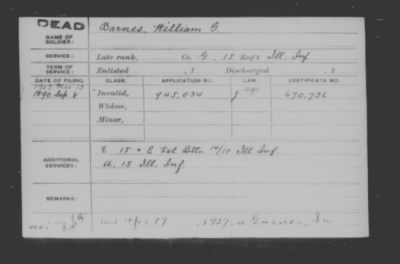 DEAD
NAME OF SOLDIER: Barnes, William G
SERVICE: Late rank, Co. G, 15 Reg't Ill. Inf
TERM OF SERVICE: Enlisted , 1 Discharged , 1
DATE OF FILING. CLASS. APPLICATION NO. LAW. CERTIFICATE NO.
1890 Sep 8 Invalid, 945,034 J 1890 670,736
Widow,
Minor,
ADDITIONAL SERVICES: E 15 & E Vet Battn 14/15 Ill. Inf.
A. 15 Ill. Inf
REMARKS:
19, 1927, at Garner, Ia